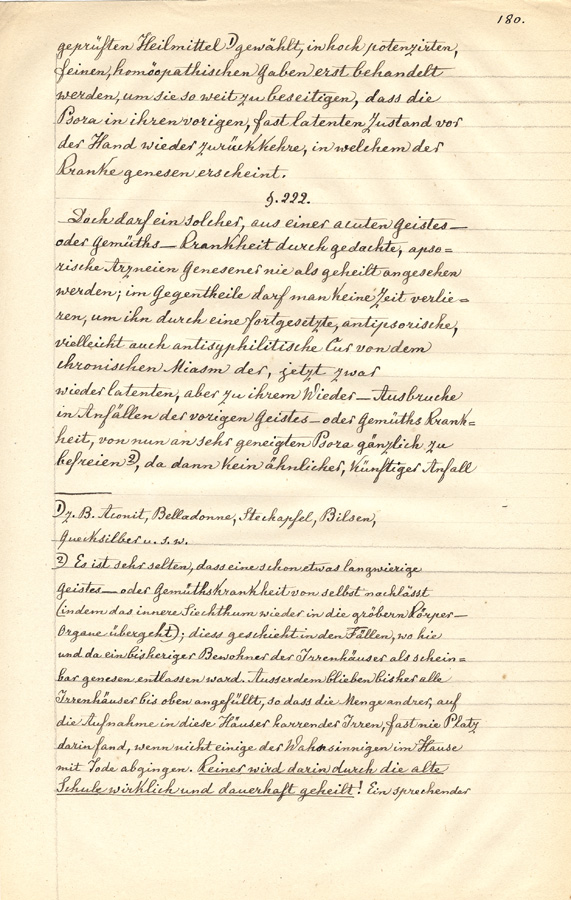 180.
geprüften Heilmittel 1) gewählt, in hoch potenzirten,
feinen, homöopathischen Gaben erst behandelt
werden, um sie so weit zu beseitigen, dass die
Psora in ihren vorigen, fast latenten Zustand vor
der Hand wieder zurückkehre, in welchem der
Kranke genesen erscheint.
§. 222.
Doch darf ein solcher, aus einer acuten Geistes-
oder Gemüths-Krankheit durch gedachte, apso=
rische Arzneien Genesener nie als geheilt angesehen
werden; im Gegentheile darf man keine Zeit verlie=
ren, um ihn durch eine fortgesetzte, antipsorische,
vielleicht auch antisyphilitische Cur von dem
chronischen Miasm der, jetzt zwar
wieder latenten, aber zu ihrem Wieder-Ausbruche
in Anfällen der vorigen Geistes- oder Gemüths Krank=
heit, von nun an sehr geneigten Psora gänzlich zu
befreien 2), da dann kein ähnlicher, künftiger Anfall
1) z. B. Aconit, Belladonne, Stechapfel, Bilsen,
Quecksilber u. s. w.
2) Es ist sehr selten, dass eine schon etwas langwierige
Geistes- oder Gemüthskrankheit von selbst nachlässt
(indem das innere Siechthum wieder in die gröbern Körper-
Organe übergeht); diess geschieht in den Fällen, wo hie
und da ein bisheriger Bewohner der Irrenhäuser als schein=
bar genesen entlassen ward. Ausserdem blieben bisher alle
Irrenhäuser bis oben angefüllt, so dass die Menge andrer, auf
die Aufnahme in diese Häuser harrender Irren, fast nie Platz
darin fand, wenn nicht einige der Wahnsinnigen im Hause
mit Tode abgingen. Keiner wird darin durch die alte
Schule wirklich und dauerhaft geheilt! Ein sprechender